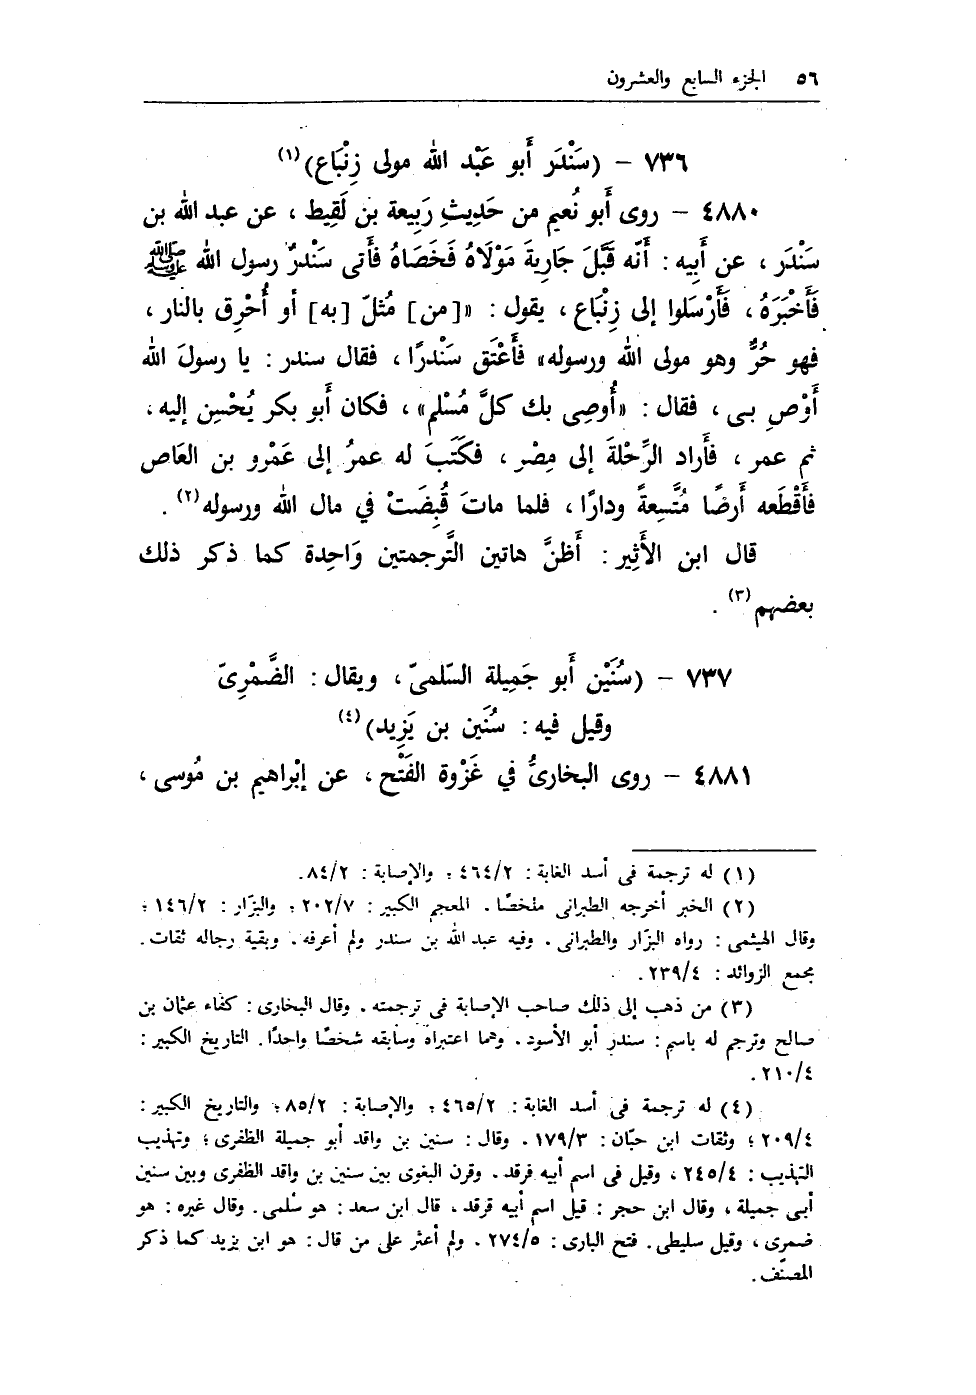 ٥٦ الجزء السابع والعشرون
٧٣٦ – (سَنْدَر أَبو عَبْد الله مولى زِنْبَاع)(١)
٤٨٨٠ – روى أَبو نُعيم من حَدِيثِ رَبِيعة بن لَقِيط ، عن عبد الله بن
سَنْدَر ، عن أَبيه : أَنَّه قَبَّلَ جَارِيةَ مَوْلَاهُ فَخَصَاهُ فأَتى سَنْدرٌ رسول الله ﷺ
فَأَخْبَرَهُ ، فَأَرْسَلوا إلى زِنْبَاع ، يقول : «[من] مُثلّ [به] أو أُحْرِق بالنار ،
فهو حُرٌّ وهو مولى الله ورسوله» فأَعْتَق سَنْدرًا ، فقال سندر : يا رسولَ الله
أَوْصِ بـى ، فقال : «أُوصِى بك كلَّ مُسْلم» ، فكان أَبو بكر يُحْسِن إليه ،
ثم عمر ، فأَراد الرِّحْلةَ إلى مِصْر ، فكَتَبَ له عمرُ إلى عَمْرو بن العَاص
فأَقْطَعه أَرضًا مُتَّسِعةً ودارًا ، فلما ماتَ قُبِضَتْ في مال الله ورسوله(٢) .
قال ابن الأَثِير : أَظنَّ هاتين التَّرجمتين وَاحِدة كما ذكر ذلك
بعضهم(٣) .
٧٣٧ – (سُنَيْن أَبو جَمِيلة السّلمىّ ، ويقال : الضَّمْرِىّ
وقيل فيه : سُنَين بن يَزِيد)(٤)
٤٨٨١ – روى البخارىُّ في غَزْوة الفَتْح ، عن إبْراهيم بن مُوسى ،
(١) له ترجمة فى أسد الغابة : ٤٦٤/٢ ؛ والإصابة : ٨٤/٢.
(٢) الخبر أخرجه الطبرانى ملخصًا . المعجم الكبير : ٢٠٢/٧ ؛ والبزّار : ١٤٦/٢ ؛
وقال الهيثمى : رواه البزّار والطبرانى . وفيه عبد الله بن سندر ولم أعرفه . وبقية رجاله ثقات .
مجمع الزوائد : ٢٣٩/٤ .
(٣) من ذهب إلى ذلك صاحب الإصابة فى ترجمته . وقال البخارى : كفاء عثمان بن
صالح وترجم له باسم : سندر أبو الأسود . وهما اعتبراه وسابقه شخصًا واحدًا . التاريخ الكبير :
٢١٠/٤ .
(٤) له ترجمة فى أسد الغابة : ٤٦٥/٢ ؛ والإصابة : ٨٥/٢ ؛ والتاريخ الكبير :
٢٠٩/٤ ؛ وثقات ابن حبّان : ١٧٩/٣ . وقال : سنين بن واقد أبو جميلة الظفرى ؛ وتهذيب
التهذيب : ٢٤٥/٤ ، وقيل فى اسم أبيه فرقد . وفرن البغوى بين سنين بن واقد الظفرى وبين سنين
أبـى جميلة ، وقال ابن حجر : قيل اسم أبيه فرقد ، قال ابن سعد : هو سُلمى . وقال غيره : هو
ضمرى ، وقيل سليطى . فتح البارى : ٢٧٤/٥ . ولم أعثر على من قال : هو ابن يزيد كما ذكر
المصنّف .